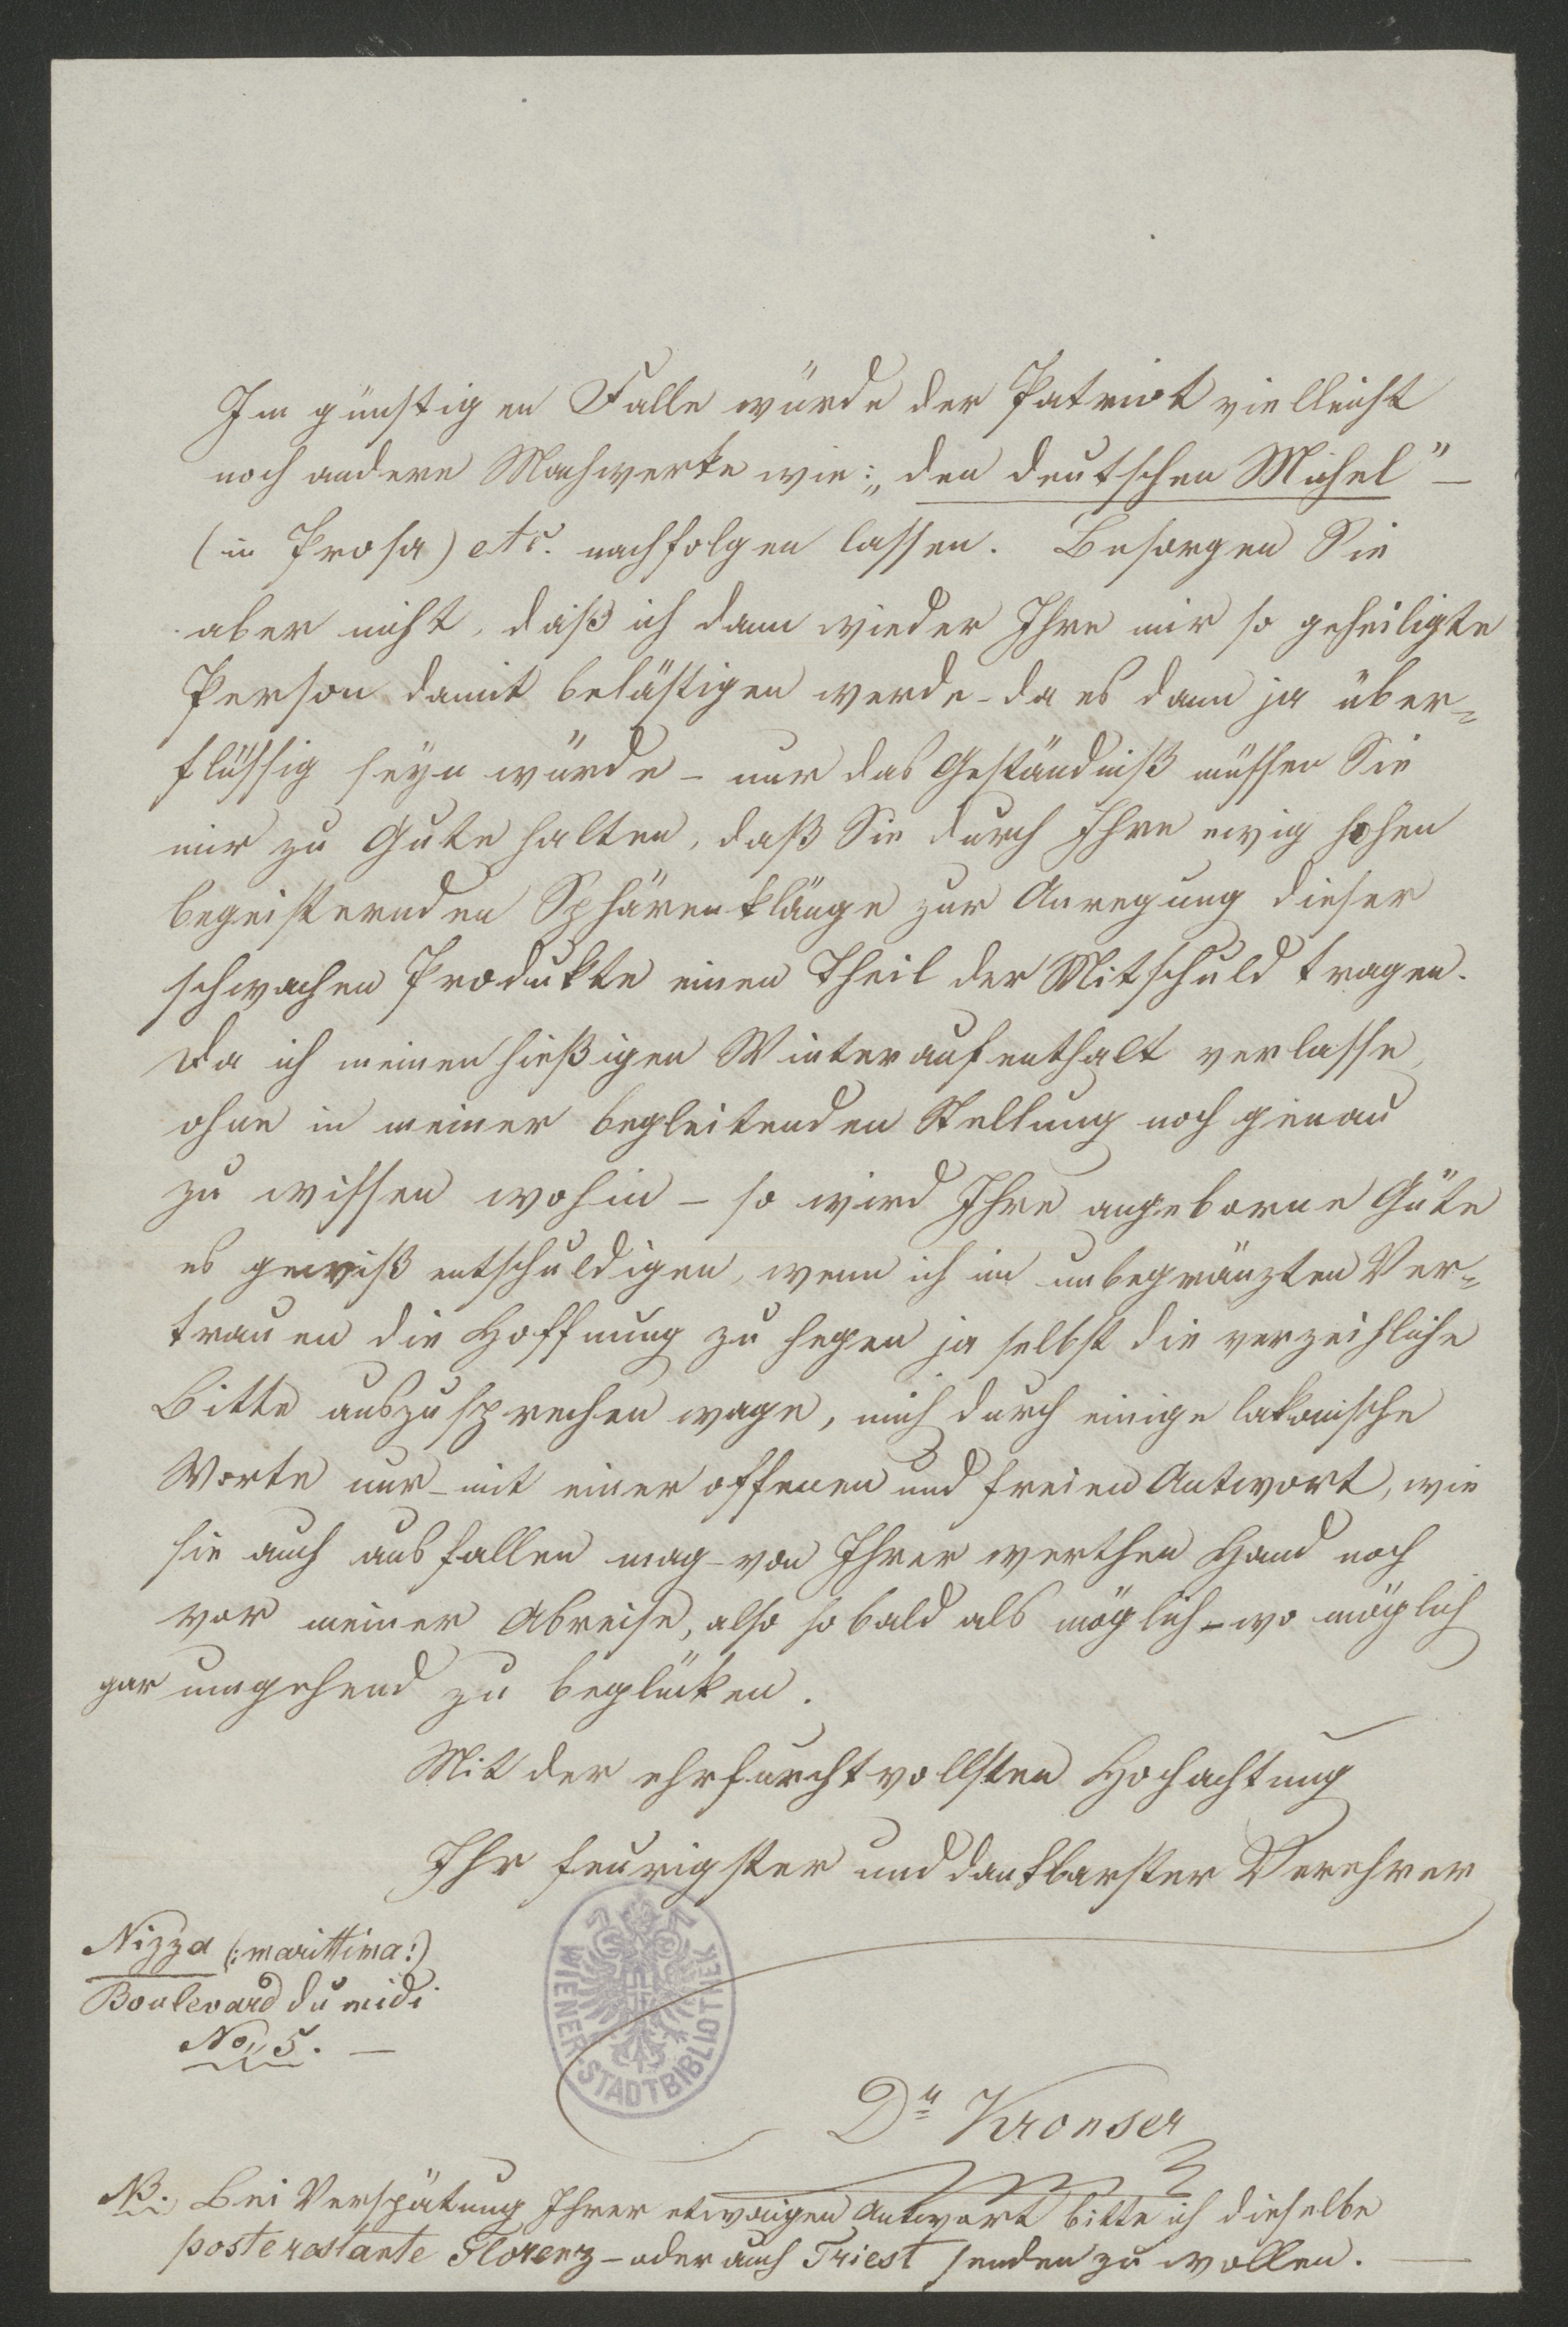 Im günstigen Falle würde der Patriot vielleicht
noch andere Machwerke wie: „den deutschen Michel" –
(in Prosa) etc. nachfolgen lassen. Besorgen Sie
aber nicht, daß ich dann wieder Ihre mir so geheiligte
Person damit belästigen werde – da es dann ja über=
flüssig seyn würde – nur das Geständniß müssen Sie
mir zu Gute halten, daß Sie durch Ihre ewig hohen
begeisternden Sphärenklänge zur Anregung dieser
schwachen Produkte einen Theil der Mitschuld tragen.
Da ich meinen hießigen Winteraufenthalt verlasse,
ohne in meiner begleitenden Stellung noch genau
zu wissen wohin – so wird Ihre angeborne Güte
es gewiß entschuldigen, wenn ich im unbegränzten Ver=
trauen die Hoffnung zu hegen ja selbst die verzeihliche
Bitte auszusprechen wage, mich durch einige lakonische
Worte nur – mit einer offenen und freien Antwort, wie
sie auch ausfallen mag – von Ihrer werthen Hand noch
vor meiner Abreise, also so bald als möglich – wo möglich
gar umgehend zu beglücken.
Mit der ehrfurchtvollsten Hochachtung
Ihr feurigster und dankbarster Verehrer
Nizza (: marittima :)
Boulevard du midi
No, 5. –
WIENER STADTBIBLIOTHEK
Dr Kronser
NB. Bei Verspätung Ihrer etwaigen Antwort bitte ich dieselbe
poste restante Florenz – oder auch Triest senden zu wollen. –